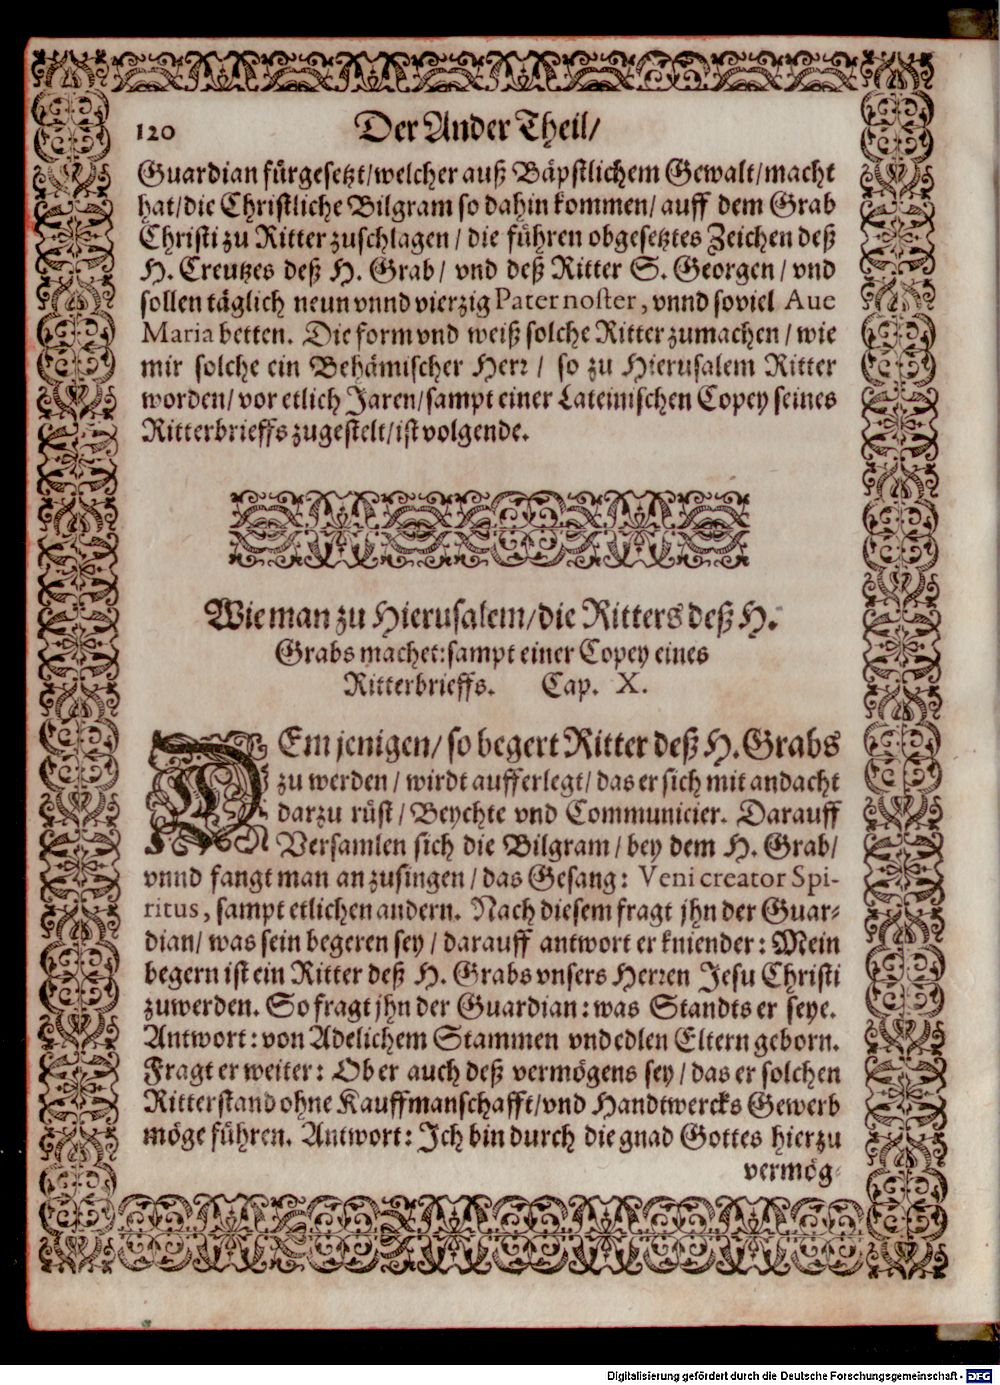 120 Der Ander Theil/
Guardian fürgesetzt/welcher auß Bäpstlichem Gewalt/macht
hat/die Christliche Bilgram so dahin kommen/ auff dem Grab
Christi zu Ritter zuschlagen / die führen obgesetztes Zeichen deß
H. Creutzes deß H. Grab/ vnd deß Ritter S. Georgen/ vnd
sollen täglich neun vnnd vierzig Pater noster, vnnd soviel Aue
Maria betten. Die form vnd weiß solche Ritter zumachen / wie
mir solche ein Behämischer Herr / so zu Hierusalem Ritter
worden/ vor etlich Jaren/sampt einer Lateinischen Copey seines
Ritterbrieffs zugestelt/ist volgende.
Wie man zu Hierusalem/die Ritters deß H.
Grabs machet: sampt einer Copey eines
Ritterbrieffs. Cap. X.
DEm jenigen/ so begert Ritter deß H. Grabs
zu werden / wirdt aufferlegt/ das er sich mit andacht
darzu rüst / Beychte vnd Communicier. Darauff
Versamlen sich die Bilgram/ bey dem H. Grab/
vnnd fangt man an zusingen / das Gesang: Veni creator Spi-
ritus, sampt etlichen andern. Nach diesem fragt jhn der Guar-
dian/ was sein begeren sey / darauff antwort er kniender: Mein
begern ist ein Ritter deß H. Grabs vnsers Herren Jesu Christi
zuwerden. So fragt jhn der Guardian: was Standts er seye.
Antwort: von Adelichem Stammen vnd edlen Eltern geborn.
Fragt er weiter: Ob er auch deß vermögens sey / das er solchen
Ritterstand ohne Kauffmanschafft/vnd Handtwercks Gewerb
möge führen. Antwort: Ich bin durch die gnad Gottes hierzu
vermög-
Digitalisierung gefördert durch die Deutsche Forschungsgemeinschaft - DFG